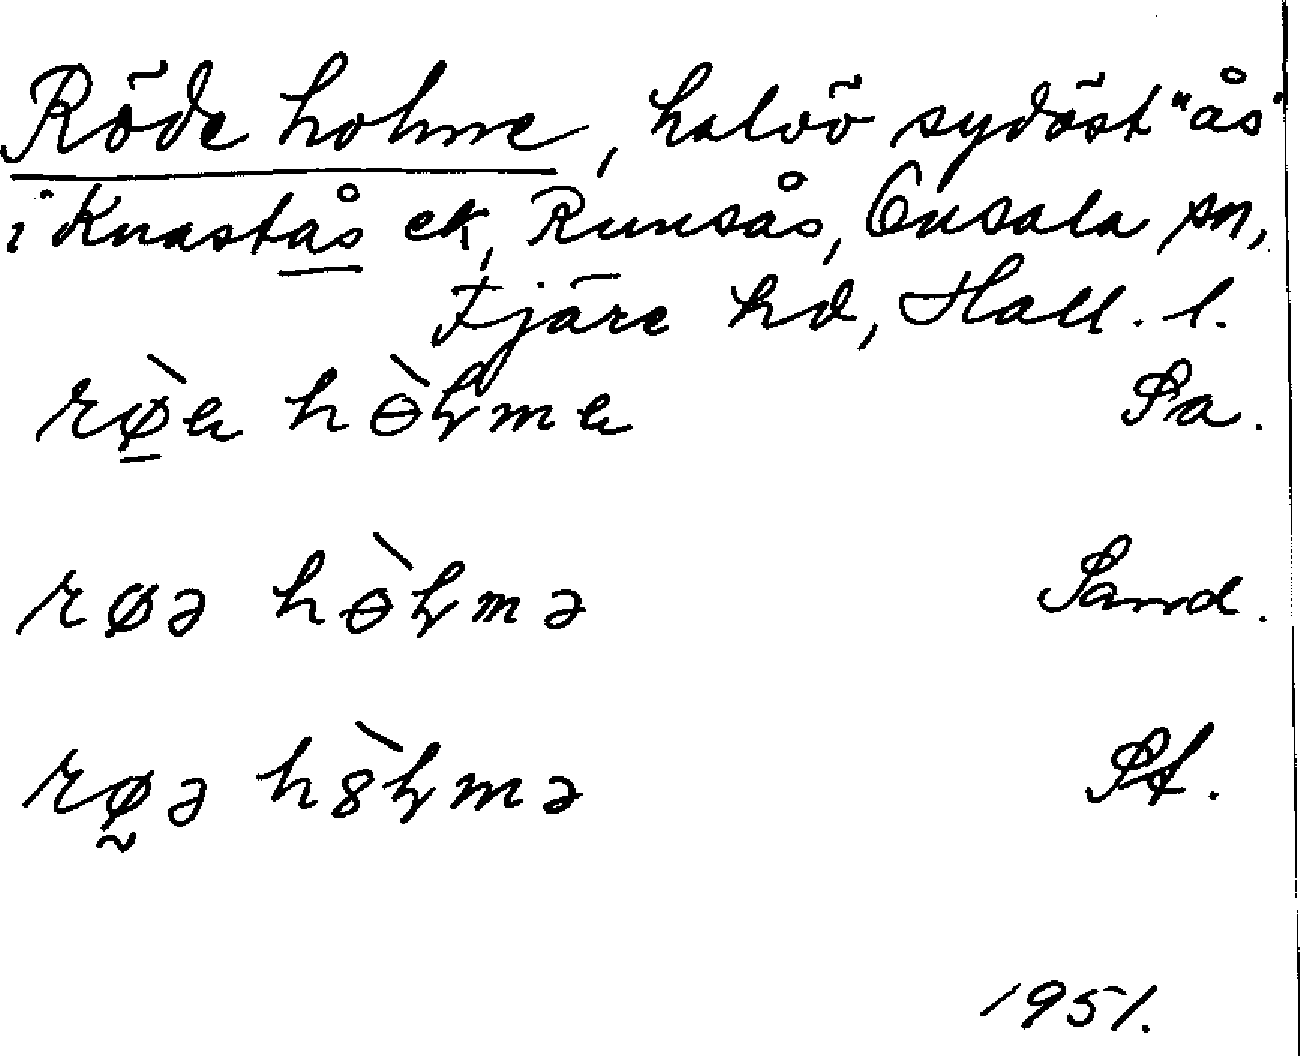 Röde holme, halvö sydöst "ås"
i Knastås ek, Runsås, Onsala sn,
Fjäre hd, Hall. l.
rø̠̀ɐ hɵ̀ɫmɐ Pa.
røə hɵ̀ɫmə Sand.
rø̰ə h8̀ɫmə Pf.
1951.